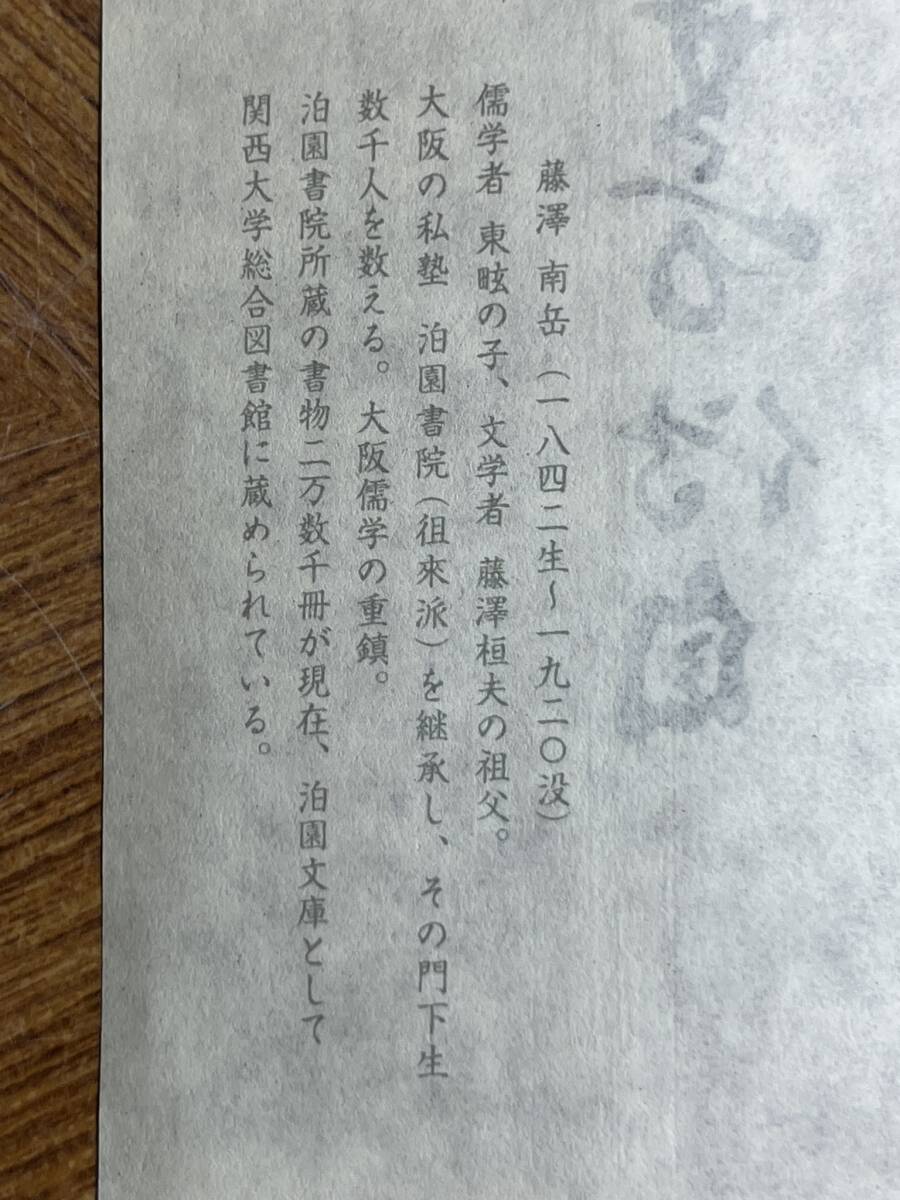 藤澤 南岳（一八四二生～一九二〇没）
儒学者 東畡の子、文学者 藤澤桓夫の祖父。
大阪の私塾 泊園書院（徂來派）を継承し、その門下生
数千人を数える。大阪儒学の重鎮。
泊園書院所蔵の書物二万数千冊が現在、泊園文庫として
関西大学総合図書館に蔵められている。